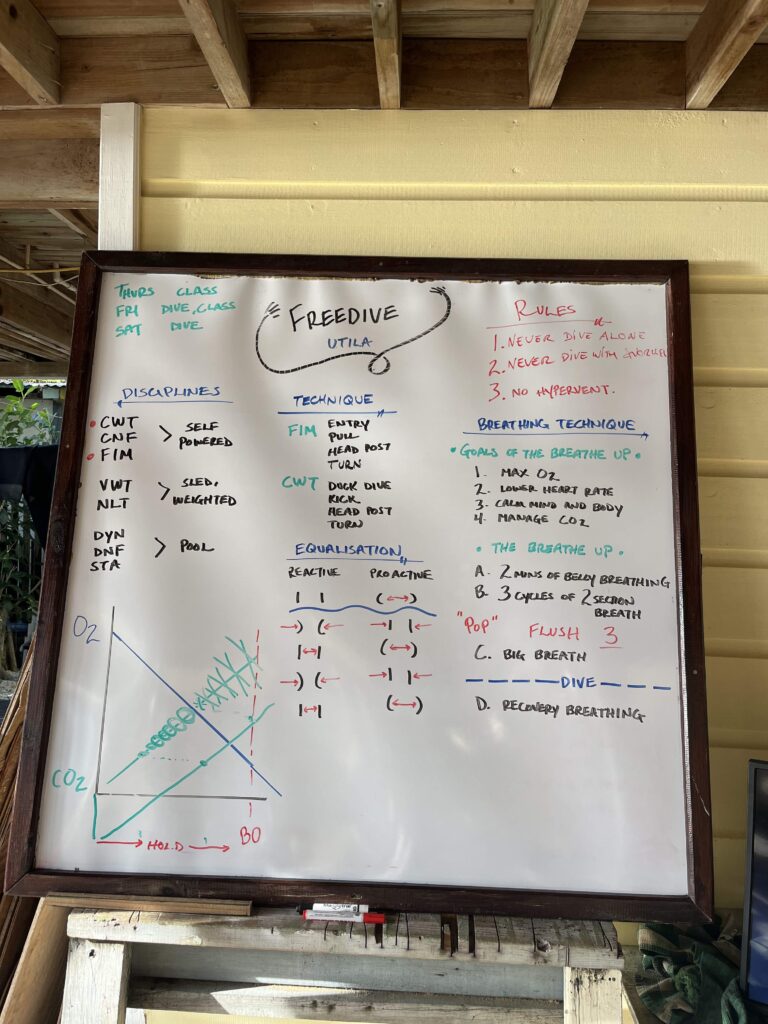 THURS CLASS
FRI DIVE, CLASS
SAT DIVE
FREEDIVE
UTILA
RULES
1. NEVER DIVE ALONE
2. NEVER DIVE WITH SNORKEL
3. NO HYPERVENT.
DISCIPLINES
CWT
CNF
FIM
> SELF POWERED
VWT
NLT
> SLED, WEIGHTED
DYN
DNF
STA
> POOL
TECHNIQUE
FIM ENTRY
PULL
HEAD POST
TURN
CWT DUCK DIVE
KICK
HEAD POST
TURN
EQUALISATION
REACTIVE PROACTIVE
| | (↔)
→) (← →| |←
|↔| (↔)
→) (← →| |←
|↔| (↔)
BREATHING TECHNIQUE
• GOALS OF THE BREATHE UP •
1. MAX O2
2. LOWER HEART RATE
3. CALM MIND AND BODY
4. MANAGE CO2
• THE BREATHE UP •
A. 2 MINS OF BELLY BREATHING
B. 3 CYCLES OF 2 SECTION
BREATH
"POP" FLUSH 3
C. BIG BREATH
DIVE
D. RECOVERY BREATHING
O2
CO2
HOLD
BO